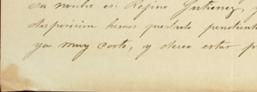 su madre es: Regino Gutierrez, y
disposicion hemos quedado pendiente
ya muy corto, y desea estar p